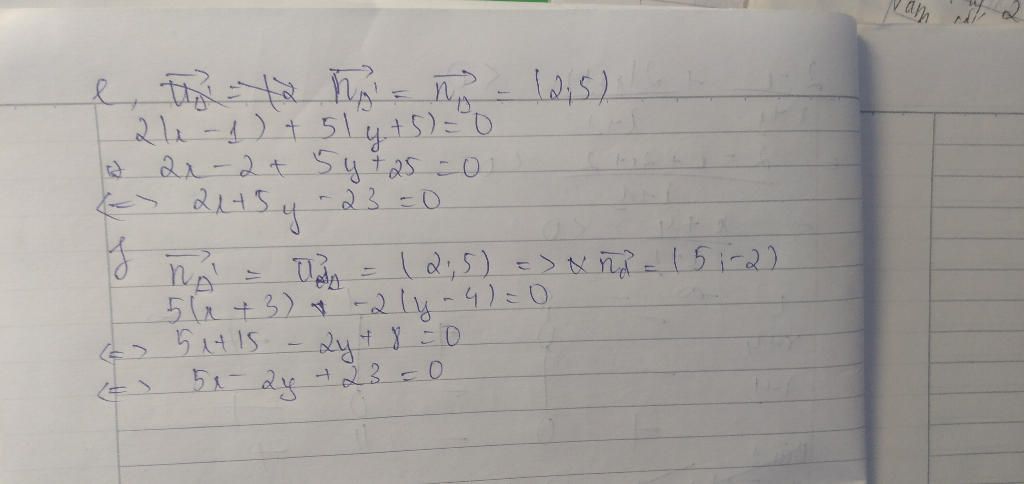 Vam
2
e, n⃗Δ' = n⃗Δ = (2;5)
2(x - 1) + 5(y+5) = 0
⇔ 2x - 2 + 5y + 25 = 0
<=> 2x+5y - 23 = 0
f
n⃗Δ' = u⃗Δ = (2;5) => n⃗ = (5;-2)
5(x + 3) -2(y - 4) = 0
<=> 5x+15 - 2y + 8 = 0
<=> 5x - 2y + 23 = 0